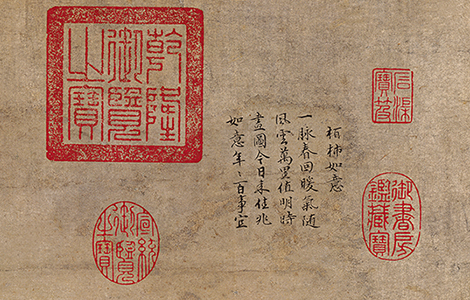 石渠
寶笈
御書房
鑑藏寶
柏柿如意
一脉春回暖氣随
風雲萬里值明時
畫圖今日来佳兆
如意年〻百事宜
乾隆
御覽
之寶
宣統
御覽
之寶